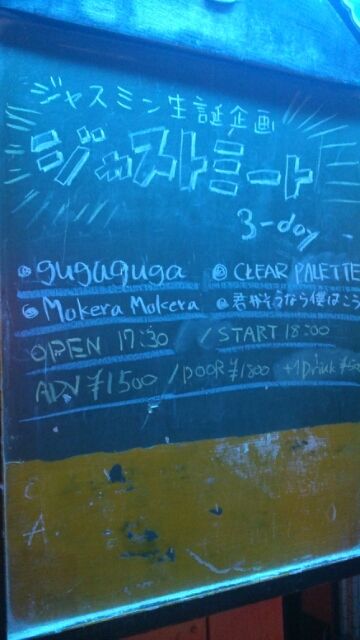 ジャスミン生誕企画
ジャストミート
3-day
• gugaguga • CLEAR PALETTE
• Mokera Mokera • 君がそうなら僕はこう
OPEN 17:30 / START 18:00
ADV ¥1500 / DOOR ¥1800 +1Drink
C
A.